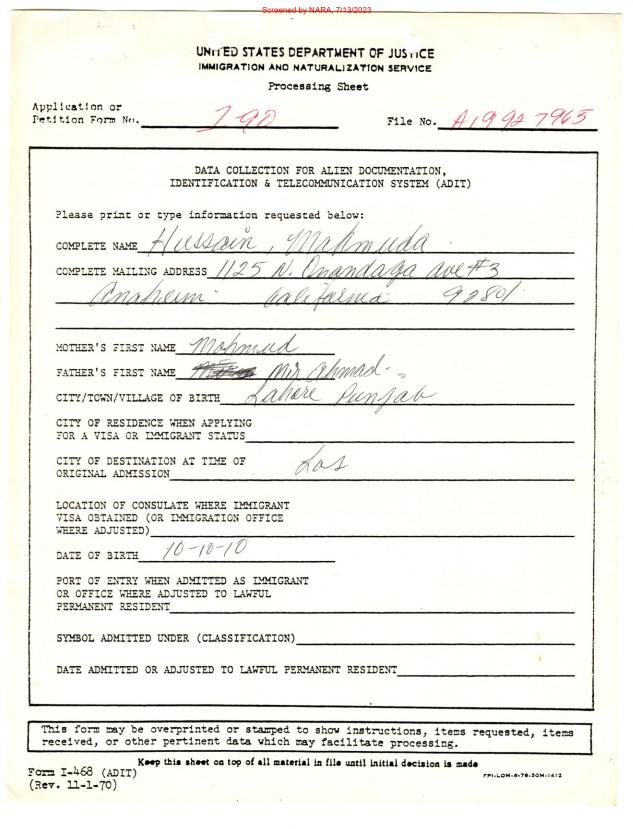 Screened by NARA, 7/13/2023
UNITED STATES DEPARTMENT OF JUSTICE
IMMIGRATION AND NATURALIZATION SERVICE
Processing Sheet
Application or
Petition Form No. I-90 File No. A19 927965
DATA COLLECTION FOR ALIEN DOCUMENTATION,
IDENTIFICATION & TELECOMMUNICATION SYSTEM (ADIT)
Please print or type information requested below:
COMPLETE NAME Hussain, Mahmuda
COMPLETE MAILING ADDRESS 1125 N. Onandaga ave #3
Anaheim California 92801
MOTHER'S FIRST NAME Mohmud
FATHER'S FIRST NAME Mir Ahmad
CITY/TOWN/VILLAGE OF BIRTH Lahore Punjab
CITY OF RESIDENCE WHEN APPLYING
FOR A VISA OR IMMIGRANT STATUS
CITY OF DESTINATION AT TIME OF
ORIGINAL ADMISSION Los
LOCATION OF CONSULATE WHERE IMMIGRANT
VISA OBTAINED (OR IMMIGRATION OFFICE
WHERE ADJUSTED)
DATE OF BIRTH 10-10-10
PORT OF ENTRY WHEN ADMITTED AS IMMIGRANT
OR OFFICE WHERE ADJUSTED TO LAWFUL
PERMANENT RESIDENT
SYMBOL ADMITTED UNDER (CLASSIFICATION)
DATE ADMITTED OR ADJUSTED TO LAWFUL PERMANENT RESIDENT
This form may be overprinted or stamped to show instructions, items requested, items
received, or other pertinent data which may facilitate processing.
Keep this sheet on top of all material in file until initial decision is made
Form I-468 (ADIT)
(Rev. 11-1-70)
FPI-LOM-6-78-50M-1412